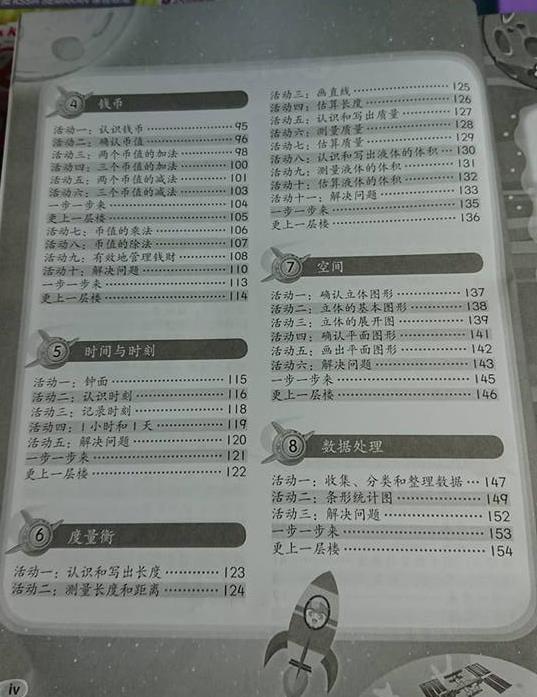 4 钱币
活动一：认识钱币 95
活动二：确认币值 96
活动三：两个币值的加法 98
活动四：三个币值的加法 100
活动五：两个币值的减法 101
活动六：三个币值的减法 103
一步一步来 104
更上一层楼 105
活动七：币值的乘法 106
活动八：币值的除法 107
活动九：有效地管理钱财 108
活动十：解决问题 110
一步一步来 113
更上一层楼 114
5 时间与时刻
活动一：钟面 115
活动二：认识时刻 116
活动三：记录时刻 118
活动四：1小时和1天 119
活动五：解决问题 120
一步一步来 121
更上一层楼 122
6 度量衡
活动一：认识和写出长度 123
活动二：测量长度和距离 124
活动三：画直线 125
活动四：估算长度 126
活动五：认识和写出质量 127
活动六：测量质量 128
活动七：估算质量 129
活动八：认识和写出液体的体积 130
活动九：测量液体的体积 131
活动十：估算液体的体积 132
活动十一：解决问题 133
一步一步来 135
更上一层楼 136
7 空间
活动一：确认立体图形 137
活动二：立体的基本图形 138
活动三：立体的展开图 139
活动四：确认平面图形 141
活动五：画出平面图形 142
活动六：解决问题 143
一步一步来 145
更上一层楼 146
8 数据处理
活动一：收集、分类和整理数据 147
活动二：条形统计图 149
活动三：解决问题 152
一步一步来 153
更上一层楼 154
iv